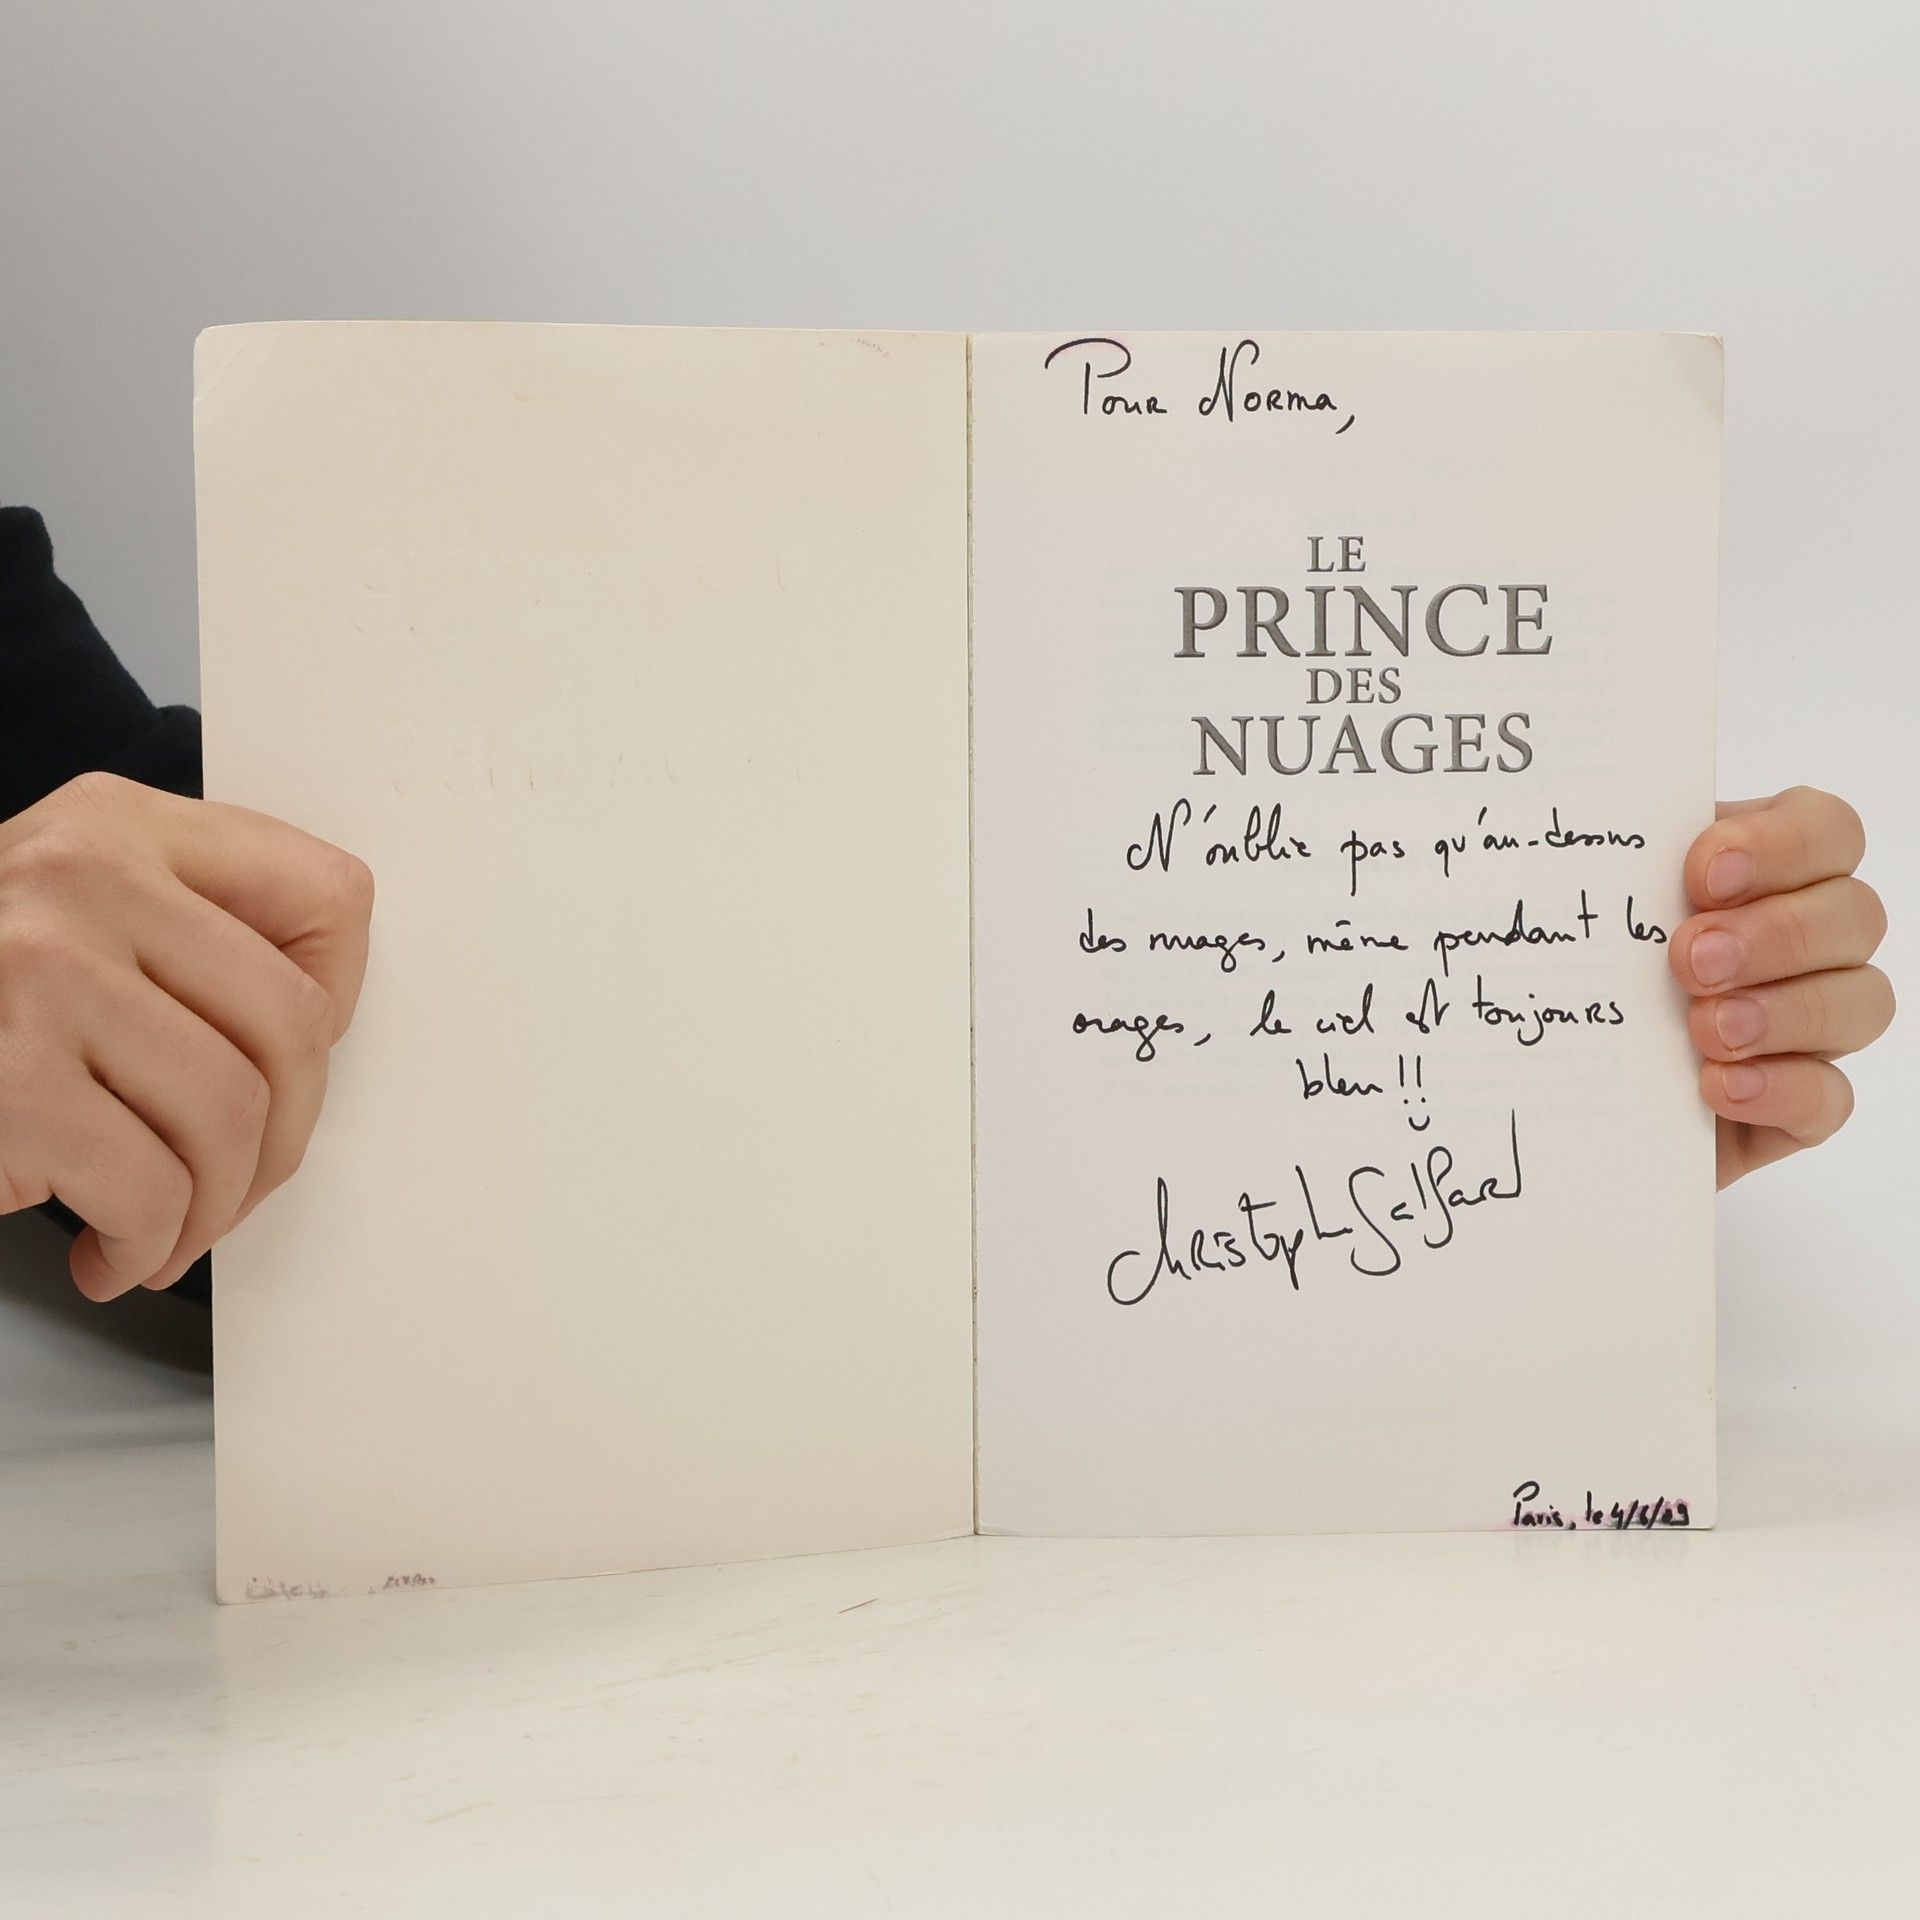 Pour Norma,
LE
PRINCE
DES
NUAGES
N'oublie pas qu'au-dessus
des nuages, même pendant les
orages, le ciel est toujours
bleu !!
Christophe Galfard
Paris, le 4/6/09